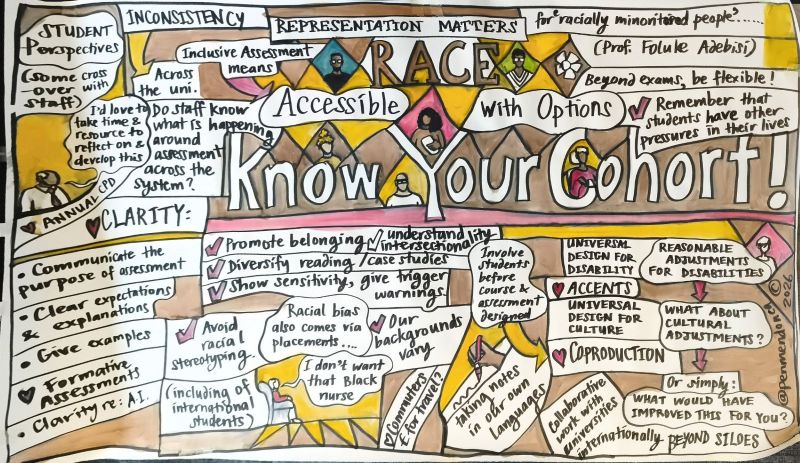 STUDENT
Perspectives
(some cross
over with
staff)
INCONSISTENCY
Across
the uni.
REPRESENTATION MATTERS
for 'racially minoritised people'......
(Prof. Foluke Adebisi)
Inclusive Assessment
means
RACE
Beyond exams, be flexible!
Accessible
with Options
Remember that
students have other
pressures in their lives
I'd love to
take time &
resource to
reflect on &
develop this
ANNUAL CPD
Do staff know
what is happening
around
assessment
across the
system?
Know Your Cohort!
CLARITY:
• Communicate the
purpose of assessment
• Clear expectations
& explanations
• Give examples
Formative
Assessments
• Clarity re: A.I.
Promote belonging
understand
intersectionality
Diversify reading / case studies
Show sensitivity, give trigger
warnings
Avoid
racial
stereotyping.
(including of
international
students)
Racial bias
also comes via
placements....
I don't want
that Black
nurse
Our
backgrounds
vary
Involve
students
before
course &
assessment
designed
Commuters
£ for travel?
taking notes
in our own
languages
UNIVERSAL
DESIGN FOR
DISABILITY
ACCENTS
UNIVERSAL
DESIGN FOR
CULTURE
COPRODUCTION
Collaborative
work with
universities
internationally
BEYOND SILOES
REASONABLE
ADJUSTMENTS
FOR DISABILITIES
WHAT ABOUT
CULTURAL
ADJUSTMENTS?
Or simply:
WHAT WOULD HAVE
IMPROVED THIS FOR YOU?
@penmendonca © 2026